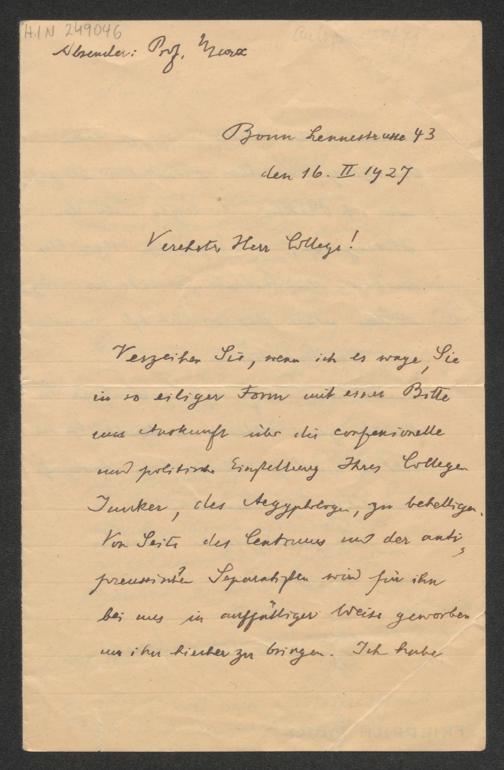 H.I.N 249046
Absender: Prof. Marx
Bonn Lennestrasse 43
den 16. II 1927
Verehrter Herr College!
Verzeihen Sie, wenn ich es wage, Sie
in so eiliger Form mit einer Bitte
um Auskunft über die confessionelle
und politische Einstellung Ihres Collegen
Junker, des Aegyptologen, zu behelligen.
Von Seite des Centrums und der anti-
preussischen Separatisten wird für ihn
bei uns in auffälliger Weise geworben
um ihn hierher zu bringen. Ich habe